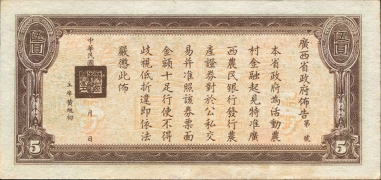 廣西省政府佈告 第 號
本省政府為活動農
村金融起見特准廣
西農民銀行發行農
產證券對於公私交
易并准照該券票面
金額十足行使不得
歧視低折違即依法
嚴懲此佈
中華民國
月 日
主席黃旭初
伍圓
伍圓
5
5